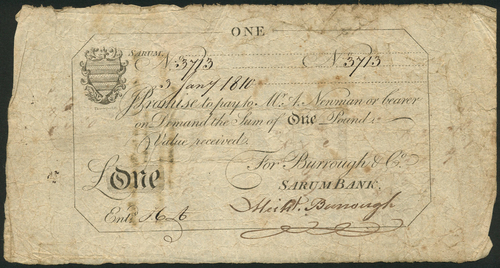 ONE
SARUM
No. 3713 No. 3713
3 Jany 1810
I Promise to pay to Mr. A. Newman or bearer
on Demand the Sum of One Pound
Value received
For Burrough & Co.
£One SARUM BANK
Entd.
Burrough